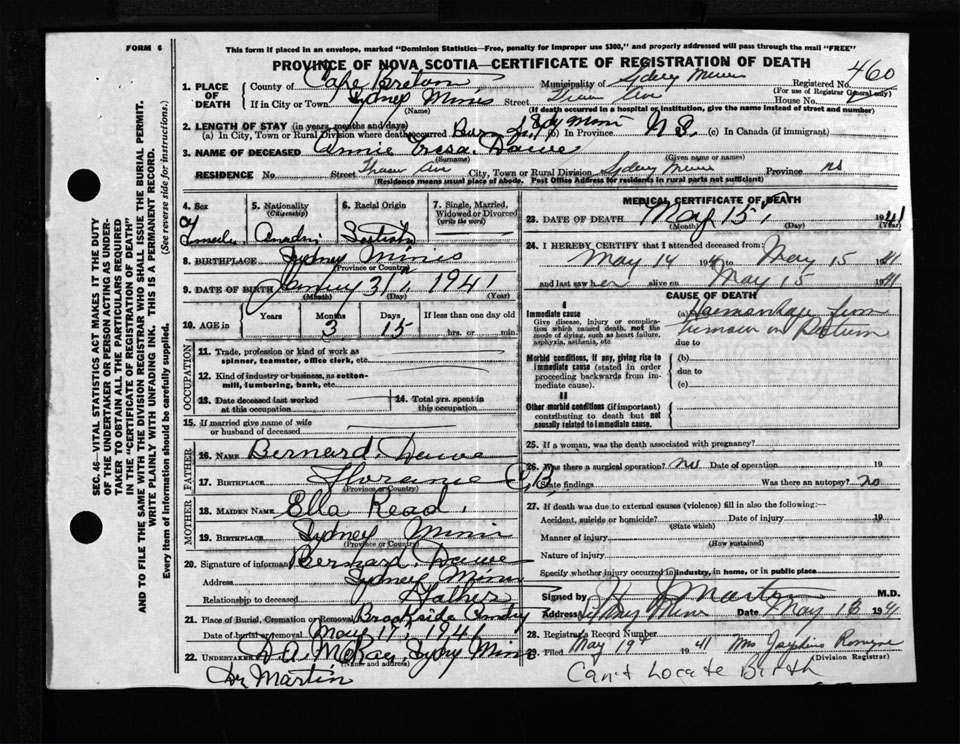 FORM 6
This form if placed in an envelope, marked "Dominion Statistics—Free, penalty for improper use $300," and properly addressed will pass through the mail "FREE"
PROVINCE OF NOVA SCOTIA—CERTIFICATE OF REGISTRATION OF DEATH
1. PLACE OF DEATH
County of Cape Breton Municipality of Sydney Mines Registered No. 460
(For use of Registrar General only)
If in City or Town Sydney Mines Street Ave House No.
(Name) (If death occurred in a hospital or institution, give the name instead of street and number)
2. LENGTH OF STAY (in years, months and days)
(a) In City, Town or Rural Division where death occurred Born Syd Mines (b) In Province N S. (c) In Canada (if immigrant)
3. NAME OF DECEASED Annie Dawe
(Surname) (Given name or names)
RESIDENCE No. Street Ave City, Town or Rural Division Sydney Mines Province NS
(Residence means usual place of abode. Post Office Address for residents in rural parts not sufficient)
4. Sex 5. Nationality (Citizenship) 6. Racial Origin 7. Single, Married, Widowed or Divorced (write the word)
Female
8. BIRTHPLACE Sydney Mines
(Province or Country)
9. DATE OF BIRTH 31, 1941
(Month) (Day) (Year)
10. AGE in Years Months Days If less than one day old
3 15 hrs. or min.
OCCUPATION
11. Trade, profession or kind of work as spinner, teamster, office clerk, etc.
12. Kind of industry or business, as cotton-mill, lumbering, bank, etc.
13. Date deceased last worked at this occupation 14. Total yrs. spent in this occupation
15. If married give name of wife or husband of deceased
FATHER
16. NAME Bernard Dawe
17. BIRTHPLACE Florence C.B.
(Province or Country)
MOTHER
18. MAIDEN NAME Ella Read
19. BIRTHPLACE Sydney Mines
(Province or Country)
20. Signature of informant Bernard Dawe
Address Sydney Mines
Relationship to deceased Father
21. Place of Burial, Cremation or Removal Brookside Cemetry
Date of burial or removal May 17, 1941
22. Undertaker D A. McKay, Sydny Mines
(Name and address)
Dr Martin
MEDICAL CERTIFICATE OF DEATH
23. DATE OF DEATH May 15, 1941
(Month) (Day) (Year)
24. I HEREBY CERTIFY that I attended deceased from
May 14 1941 to May 15 1941
and last saw her alive on May 15 1941
CAUSE OF DEATH
I
Immediate cause
Give disease, injury or complication which caused death, not the mode of dying, such as heart failure, asphyxia, asthenia, etc.
(a) Haemorrhage from
tumour in Rectum
due to
Morbid conditions, if any, giving rise to immediate cause (stated in order proceeding backwards from immediate cause).
(b)
due to
(c)
II
Other morbid conditions (if important) contributing to death but not causally related to immediate cause.
25. If a woman, was the death associated with pregnancy?
26. Was there a surgical operation? no Date of operation 19
State findings Was there an autopsy? no
27. If death was due to external causes (violence) fill in also the following:—
Accident, suicide or homicide? Date of injury 19
(State which)
Manner of injury
(How sustained)
Nature of injury
Specify whether injury occurred in industry, in home, or in public place
Signed by Martin M.D.
Address Sydney Mines Date May 16 1941
28. Registrar's Record Number
29. Filed May 19th 1941 Mrs Josephine
(Division Registrar)
Can't Locate Birth
SEC. 46—VITAL STATISTICS ACT MAKES IT THE DUTY
OF THE UNDERTAKER OR PERSON ACTING AS UNDER-
TAKER TO OBTAIN ALL THE PARTICULARS REQUIRED
IN THE "CERTIFICATE OF REGISTRATION OF DEATH"
AND TO FILE THE SAME WITH THE DIVISION REGISTRAR WHO SHALL ISSUE THE BURIAL PERMIT.
WRITE PLAINLY WITH UNFADING INK. THIS IS A PERMANENT RECORD.
Every item of Information should be carefully supplied. (See reverse side for instructions.)